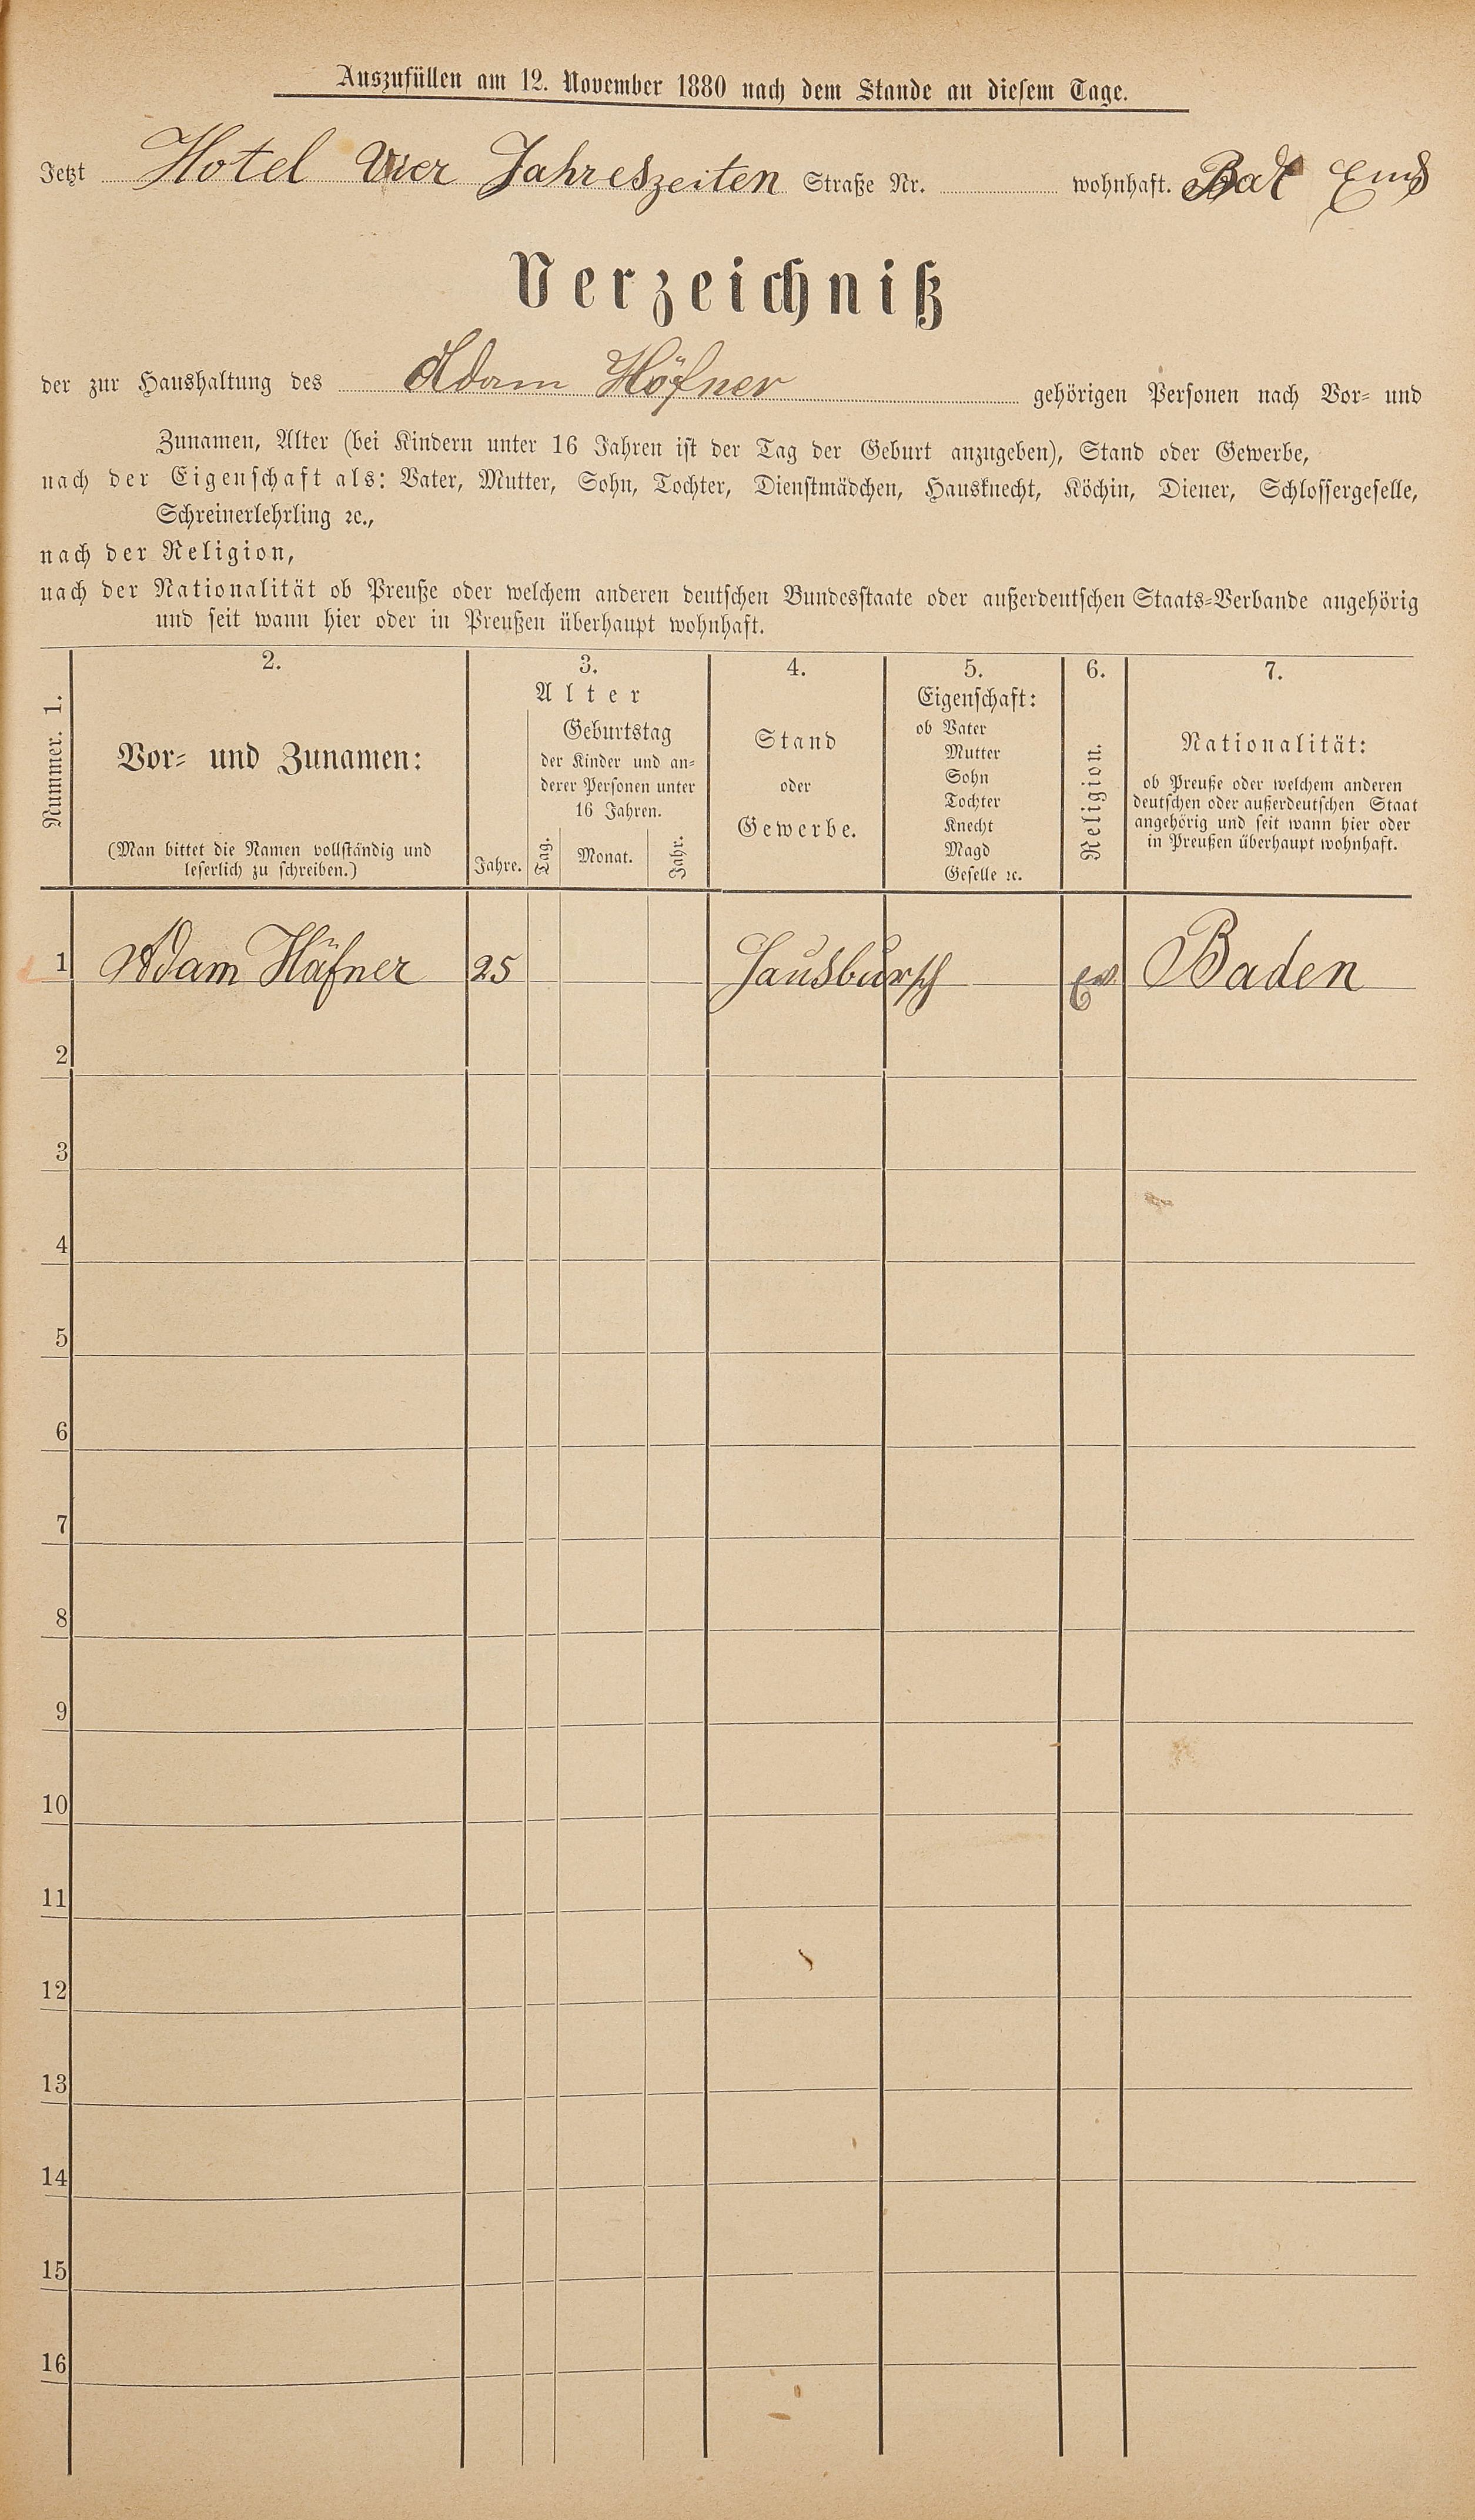 Auszufüllen am 12. November 1880 nach dem Stande an diesem Tage.
Jetzt Hotel Vier Jahreszeiten Straße Nr. wohnhaft. Bad Ems
Verzeichniß
der zur Haushaltung des Adam Höfner gehörigen Personen nach Vor- und
Zunamen, Alter (bei Kindern unter 16 Jahren ist der Tag der Geburt anzugeben), Stand oder Gewerbe,
nach der Eigenschaft als: Vater, Mutter, Sohn, Tochter, Dienstmädchen, Hausknecht, Köchin, Diener, Schlossergeselle,
Schreinerlehrling ꝛc.,
nach der Religion,
nach der Nationalität ob Preuße oder welchem anderen deutschen Bundesstaate oder außerdeutschen Staats-Verbande angehörig
und seit wann hier oder in Preußen überhaupt wohnhaft.
Nummer. 1.
2.
Vor- und Zunamen:
(Man bittet die Namen vollständig und
leserlich zu schreiben.)
3.
Alter
Jahre.
Geburtstag
der Kinder und an-
derer Personen unter
16 Jahren.
Tag. Monat. Jahr.
4.
Stand
oder
Gewerbe.
5.
Eigenschaft:
ob Vater
Mutter
Sohn
Tochter
Knecht
Magd
Geselle ꝛc.
6.
Religion.
7.
Nationalität:
ob Preuße oder welchem anderen
deutschen oder außerdeutschen Staat
angehörig und seit wann hier oder
in Preußen überhaupt wohnhaft.
1 Adam Häfner 25 Hausbursch Ev. Baden
2
3
4
5
6
7
8
9
10
11
12
13
14
15
16